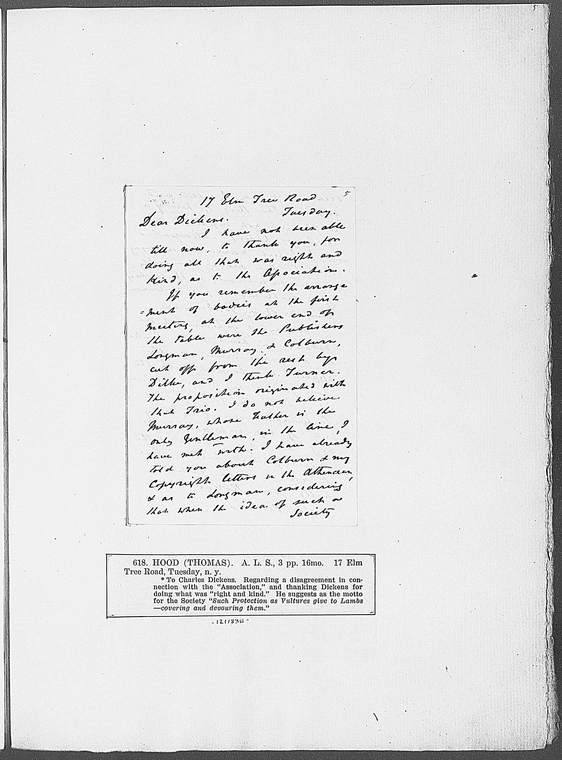 5
17 Elm Tree Road
5
Tuesday.
Dear Dickens.
I have not been able
till now, to thank you, for
doing all that was right and
kind, as to the Association.
If you remember the arrange
-ment of bodies at the first
meeting, at the lower end of
the table were the Publishers
Longman, Murray & Colburn,
cut off from the rest by
Dilke, and I think Turner.
The proposition originated with
that Trio. I do not believe
Murray, whose Father is the
only Gentleman, in the line, I
have met with. I have already
told you about Colburn & my
Copyright letters in the Atheneum,
& as to Longman, considering,
that when the idea of such a
Society
618. HOOD (THOMAS). A. L. S., 3 pp. 16mo. 17 Elm
Tree Road, Tuesday, n. y.
* To Charles Dickens. Regarding a disagreement in con-
nection with the "Association," and thanking Dickens for
doing what was "right and kind." He suggests as the motto
for the Society "Such Protection as Vultures give to Lambs
—covering and devouring them."